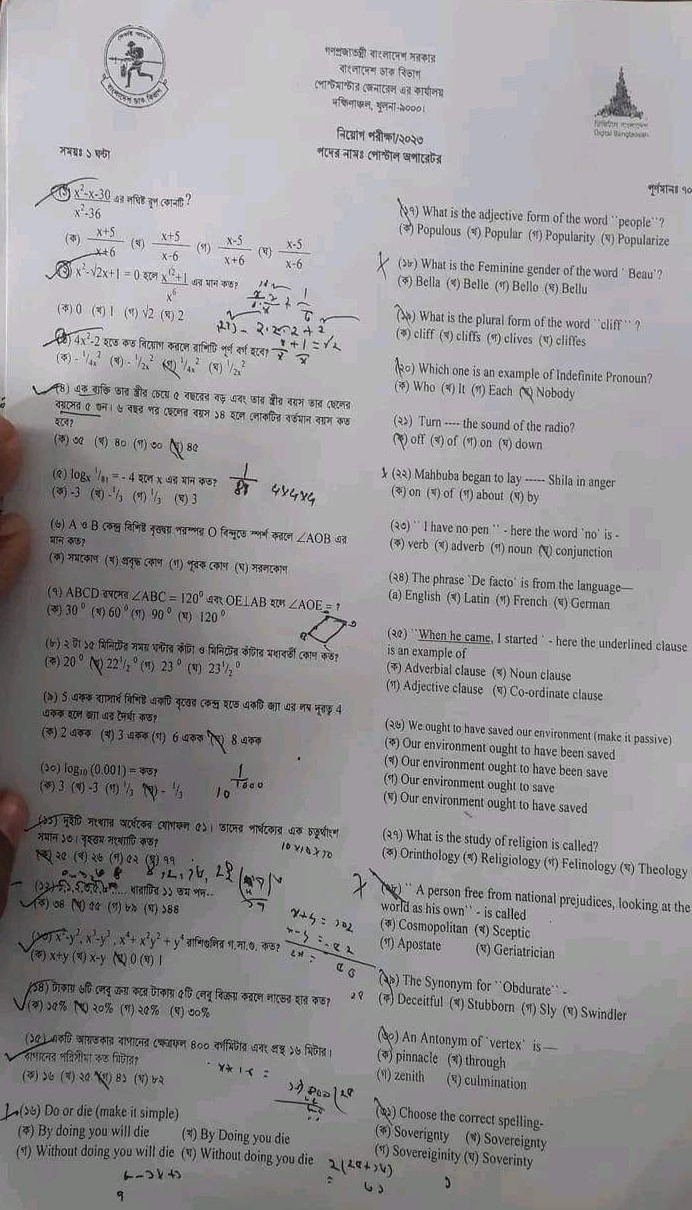 গণপ্রজাতন্ত্রী বাংলাদেশ সরকার
বাংলাদেশ ডাক বিভাগ
পোস্টমাস্টার জেনারেল এর কার্যালয়
দক্ষিণাঞ্চল, খুলনা-৯০০০।
নিয়োগ পরীক্ষা/২০২৩
পদের নামঃ পোস্টাল অপারেটর
Digital Bangladesh
সময়ঃ ১ ঘন্টা
পূর্ণমানঃ ৭০
(১) x²-x-30 / x²-36 এর লঘিষ্ট রূপ কোনটি?
(ক) x+5/x+6 (খ) x+5/x-6 (গ) x-5/x+6 (ঘ) x-5/x-6
x²-√2x+1 = 0 হলে x¹²+1/x⁶ এর মান কত?
(ক) 0 (খ) 1 (গ) √2 (ঘ) 2
4x²-2 হতে কত বিয়োগ করলে রাশিটি পূর্ণ বর্গ হবে?
(ক) - ¹/4x² (খ) - ¹/2x² (গ) ¹/4x² (ঘ) ¹/2x²
(৪) এক ব্যক্তি তার স্ত্রীর চেয়ে ৫ বছরের বড় এবং তার স্ত্রীর বয়স তার ছেলের
বয়সের ৫ গুন। ৬ বছর পর ছেলের বয়স ১৪ হলে লোকটির বর্তমান বয়স কত
হবে?
(ক) ৩৫ (খ) ৪০ (গ) ৩০ (ঘ) ৪৫
(৫) logₓ ¹/₈₁ = - 4 হলে x এর মান কত?
(ক) -3 (খ) -¹/₃ (গ) ¹/₃ (ঘ) 3
(৬) A ও B কেন্দ্র বিশিষ্ট বৃত্তদ্বয় পরস্পর O বিন্দুতে স্পর্শ করলে ∠AOB এর
মান কত?
(ক) সমকোণ (খ) প্রবৃদ্ধ কোণ (গ) পূরক কোণ (ঘ) সরলকোণ
(৭) ABCD রম্বসের ∠ABC = 120⁰ এবং OE⊥AB হলে ∠AOE = ?
(ক) 30⁰ (খ) 60⁰ (গ) 90⁰ (ঘ) 120⁰
(৮) ২ টা ১৫ মিনিটের সময় ঘন্টার কাঁটা ও মিনিটের কাঁটার মধ্যবর্তী কোণ কত?
(ক) 20⁰ (খ) 22¹/₂⁰ (গ) 23⁰ (ঘ) 23¹/₂⁰
(৯) 5 একক ব্যাসার্ধ বিশিষ্ট একটি বৃত্তের কেন্দ্র হতে একটি জ্যা এর লম্ব দূরত্ব 4
একক হলে জ্যা এর দৈর্ঘ্য কত?
(ক) 2 একক (খ) 3 একক (গ) 6 একক (ঘ) 8 একক
(১০) log₁₀ (0.001) = কত?
(ক) 3 (খ) -3 (গ) ¹/₃ (ঘ) - ¹/₃
(১১) দুইটি সংখ্যার অর্ধেকের যোগফল ৫১। তাদের পার্থক্যের এক চতুর্থাংশ
সমান ১৩। বৃহত্তম সংখ্যাটি কত?
(ক) ২৫ (খ) ২৬ (গ) ৫২ (ঘ) ৭৭
ধারাটির ১১ তম পদ--
(ক) ৩৪ (খ) ৫৫ (গ) ৮৯ (ঘ) ১৪৪
(১৩) x²-y², x³-y³, x⁴+ x²y² + y⁴ রাশিগুলির গ.সা.গু. কত?
(ক) x+y (খ) x-y (গ) 0 (ঘ) 1
(১৪) টাকায় ৬টি লেবু ক্রয় করে টাকায় ৫টি লেবু বিক্রয় করলে লাভের হার কত?
(ক) ১৫% (খ) ২০% (গ) ২৫% (ঘ) ৩০%
(১৫) একটি আয়তকার বাগানের ক্ষেত্রফল ৪০০ বর্গমিটার এবং প্রস্থ ১৬ মিটার।
বাগানের পরিসীমা কত মিটার?
(ক) ১৬ (খ) ২৫ (গ) ৪১ (ঘ) ৮২
(১৬) Do or die (make it simple)
(ক) By doing you will die (খ) By Doing you die
(গ) Without doing you will die (ঘ) Without doing you die
(১৭) What is the adjective form of the word ``people``?
(ক) Populous (খ) Popular (গ) Popularity (ঘ) Popularize
(১৮) What is the Feminine gender of the word ` Beau`?
(ক) Bella (খ) Belle (গ) Bello (ঘ) Bellu
(১৯) What is the plural form of the word ``cliff`` ?
(ক) cliff (খ) cliffs (গ) clives (ঘ) cliffes
(২০) Which one is an example of Indefinite Pronoun?
(ক) Who (খ) It (গ) Each (ঘ) Nobody
(২১) Turn ---- the sound of the radio?
(ক) off (খ) of (গ) on (ঘ) down
(২২) Mahbuba began to lay ----- Shila in anger
(ক) on (খ) of (গ) about (ঘ) by
(২৩) `` I have no pen `` - here the word `no` is -
(ক) verb (খ) adverb (গ) noun (ঘ) conjunction
(২৪) The phrase `De facto` is from the language—
(a) English (খ) Latin (গ) French (ঘ) German
(২৫) ``When he came, I started ` - here the underlined clause
is an example of
(ক) Adverbial clause (খ) Noun clause
(গ) Adjective clause (ঘ) Co-ordinate clause
(২৬) We ought to have saved our environment (make it passive)
(ক) Our environment ought to have been saved
(খ) Our environment ought to have been save
(গ) Our environment ought to save
(ঘ) Our environment ought to have saved
(২৭) What is the study of religion is called?
(ক) Orinthology (খ) Religiology (গ) Felinology (ঘ) Theology
(২৮) `` A person free from national prejudices, looking at the
world as his own`` - is called
(ক) Cosmopolitan (খ) Sceptic
(গ) Apostate (ঘ) Geriatrician
(২৯) The Synonym for ``Obdurate`` -
(ক) Deceitful (খ) Stubborn (গ) Sly (ঘ) Swindler
(৩০) An Antonym of `vertex` is —
(ক) pinnacle (খ) through
(গ) zenith (ঘ) culmination
(৩১) Choose the correct spelling-
(ক) Soverignty (খ) Sovereignty
(গ) Sovereiginity (ঘ) Soverinty